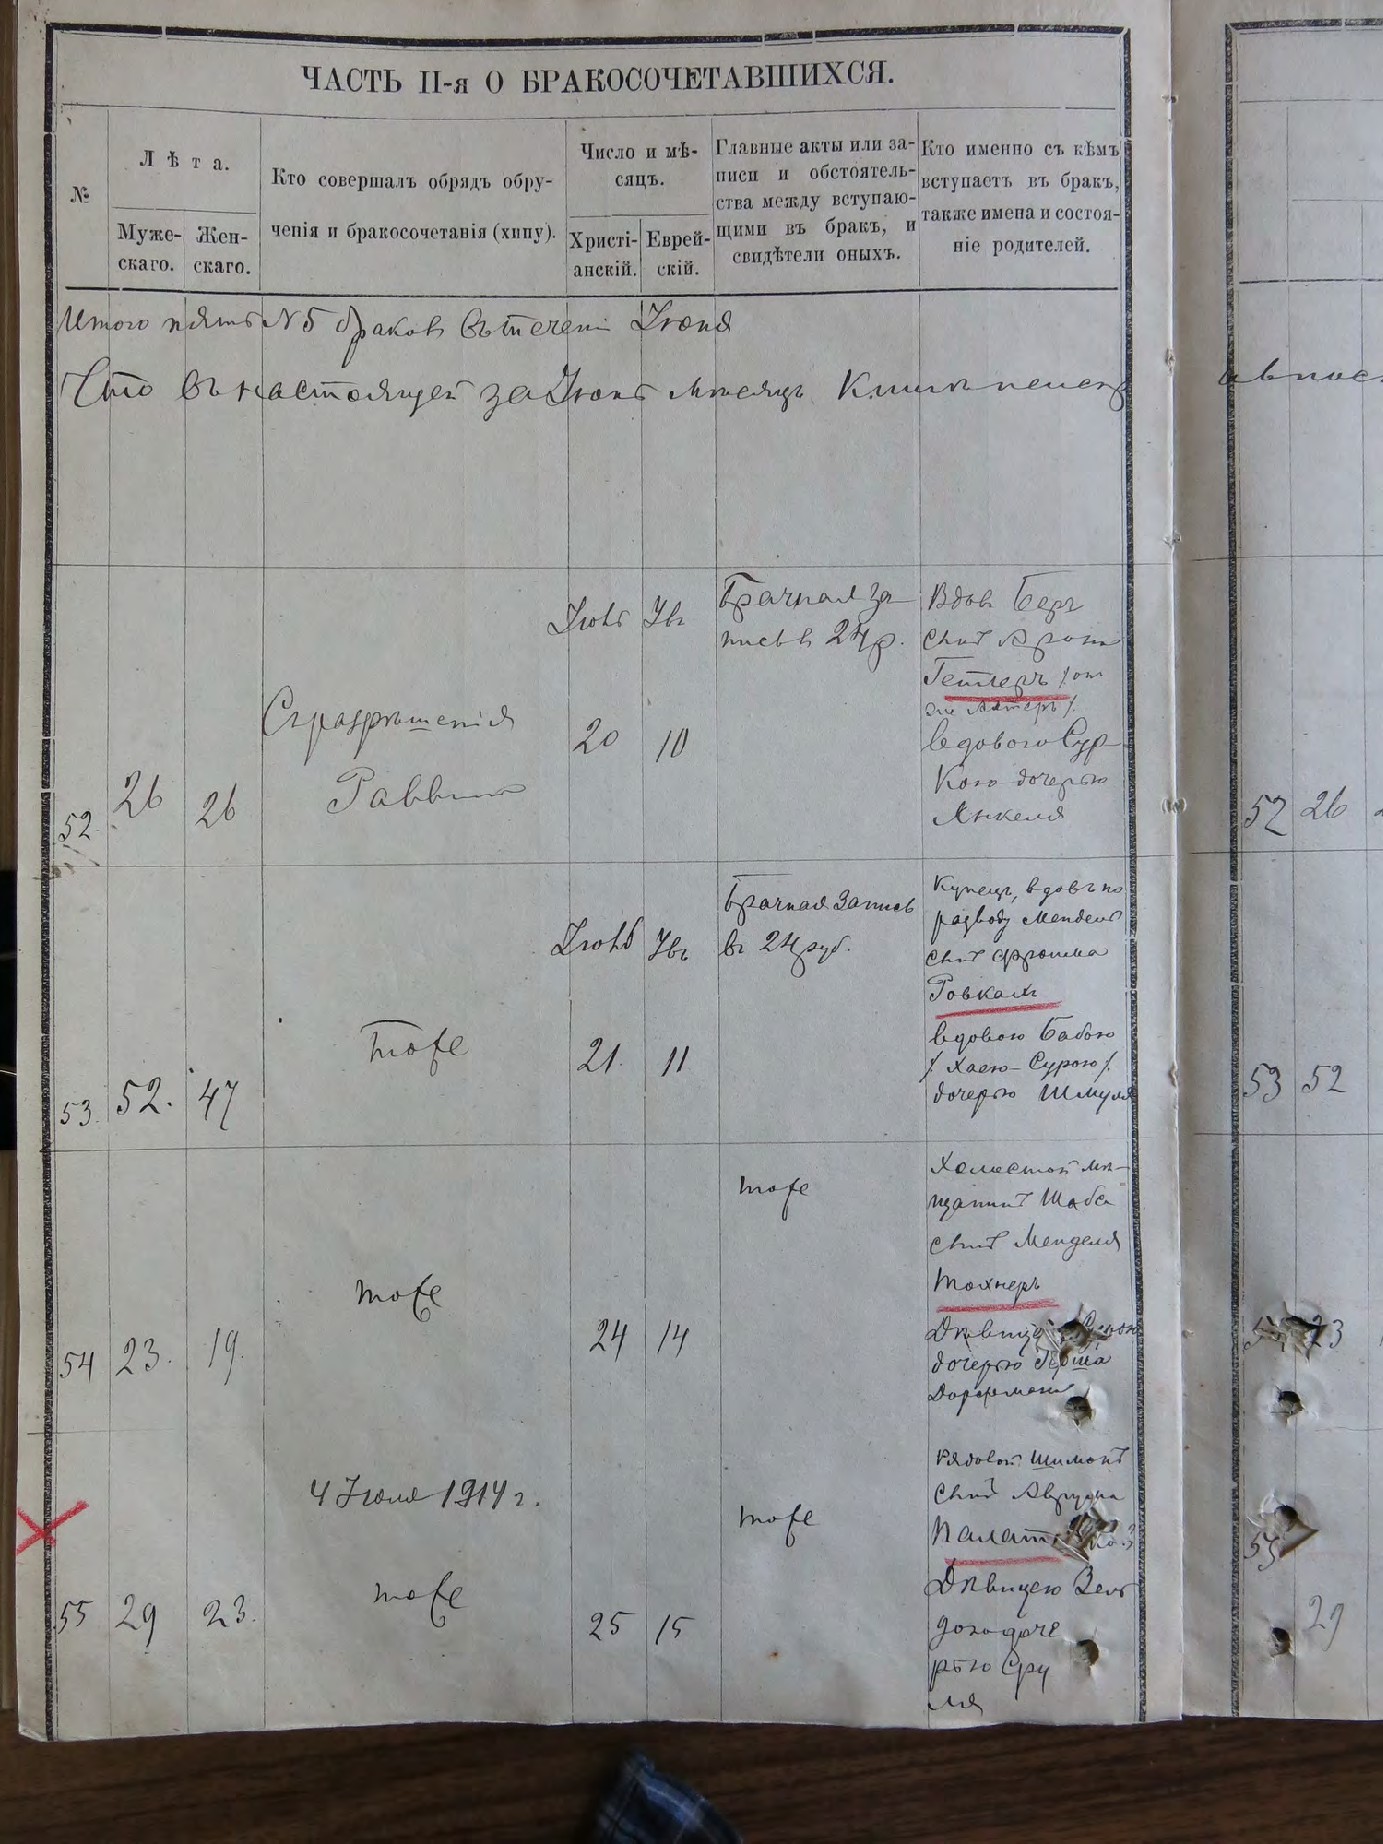 ЧАСТЬ II-я О БРАКОСОЧЕТАВШИХСЯ.
№
Лѣта.
Муже-
скаго.
Жен-
скаго.
Кто совершалъ обрядъ обру-
ченія и бракосочетанія (хипу).
Число и мѣ-
сяцъ.
Христі-
анскій.
Еврей-
скій.
Главные акты или за-
писи и обстоятель-
ства между вступаю-
щими въ бракъ, и
свидѣтели оныхъ.
Кто именно съ кѣмъ
вступаетъ въ бракъ,
также имена и состоя-
ніе родителей.
Итого пять №5 браковъ въ течени Іюня
Что въ настоящей за Іюнь мѣсяцъ
52
26
26
Съ разрѣшенія
Раввина
Іюнь
20
10
Брачная за
пись въ 24 р.
Вдов Беръ
сынъ Арона
Гетлеръ
вдовою Сур
кою дочерью
Янкеля
53
52.
47
тоже
Іюнь
21.
11
Брачная запись
въ 24 руб.
Купецъ, вдовъ по
разводу Мендель
сынъ Фроима
Ровкахъ
вдовою Бабою
/Хаею-Сурою/
дочерью Шмуля
54
23.
19.
тоже
24
14
тоже
Холостой мѣ-
щанинъ Шабса
сынъ Менделя
Токнеръ
дочерью
Дорфмана
4 Іюля 1914 г.
55
29
23.
тоже
25
15
тоже
Рядовой Шимонъ
сынъ Аврума
Палат
Дѣвицею Зель
дою доче
рью Сру
ля
52
26
53
52
23
55
29